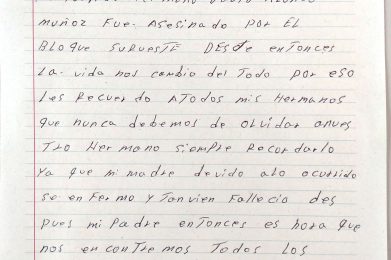 muñoz Fue. Asesinado Por EL
Bloque SURUESTE DESde enTonces
La. vida nos cambio del Todo Por eso
Les Recuerdo ATodos mis Hermanos
que nunca debemos de olvidar anues
Tro Hermano siempre Recordarlo
Ya que mi madre devido alo ocurrido
se enFermo y Tanvien Fallecio des
Pues mi Padre enTonces es hora que
nos enconTremos Todos Los